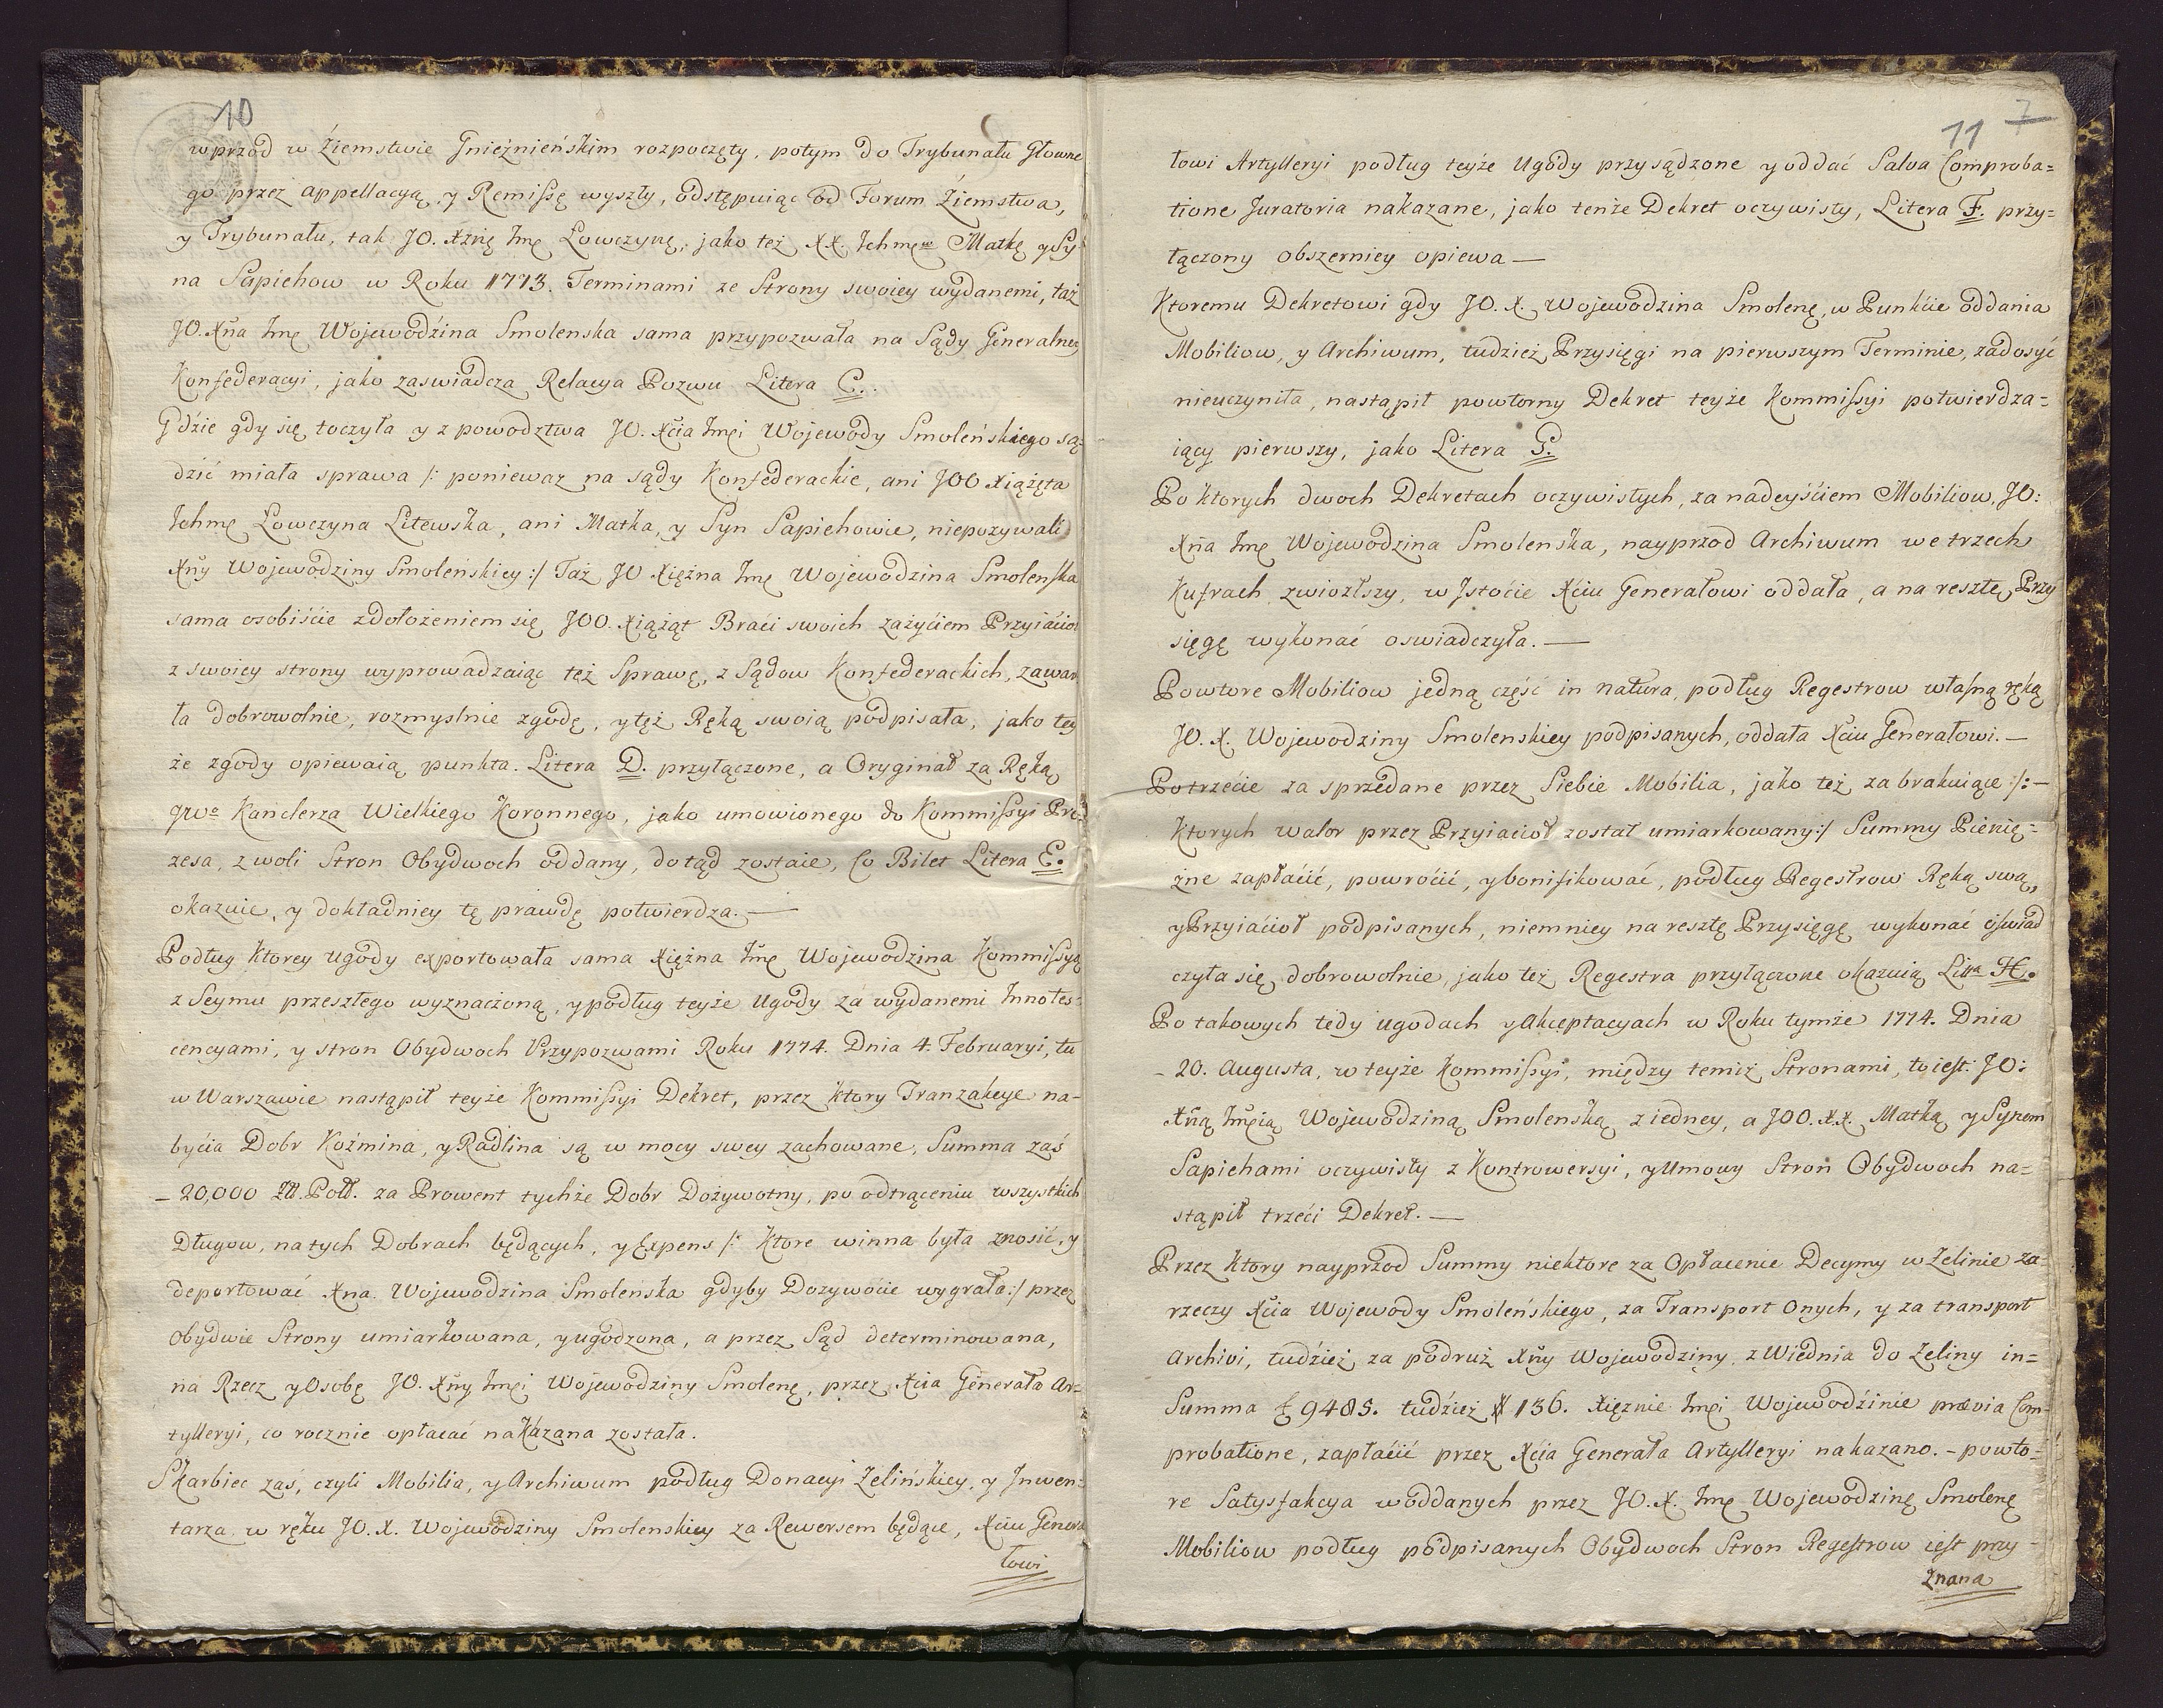 10
wprzod w Ziemstwie Gnieźnieńskim rozpoczęty, potym do Trybunału Głowne
go przez appellacyą, y Remissę wyszły, odstępuiąc od Forum Ziemstwa,
y Trybunału, tak JO. Xznę Jmę Łowczynę, jako też XX. Ichmę Matkę y Sy
na Sapiehow w Roku 1773. Terminami ze Strony swoiey wydanemi, taż
JO. Xna Jmę Wojewodzina Smolenska sama przypozwała na Sądy Generalney
Konfederacyi, jako zaswiadcza Relacya Pozwu Litera C..
Gdzie gdy się toczyła y z powodztwa JO. Xcia Jmci Wojewody Smoleńskiego są-
dzić miała sprawa /: poniewaz na sądy Konfederackie, ani JOO Xiążęta
Ichmę Łowczyna Litewska, ani Matka, y Syn Sapiehowie, niepozywali
Xny Wojewodziny Smoleńskiey :/ Taż JO Xiężna Jmę Wojewodzina Smolenska
sama osobiście zdołożeniem się JOO. Xiążąt Braci swoich zażyciem Przyiacioł
z swoiey strony wyprowadzaiąc też Sprawę, z Sądow Konfederackich, zawar
ła dobrowolnie, rozmyslnie zgodę, y też Ręką swoią podpisała, jako tey
że zgody opiewaią punkta. Litera D. przyłączone, a Oryginał za Ręką
gwo Kanclerza Wielkiego Koronnego, jako umowionego do Kommissyi Pre-
zesa, z woli Stron Obydwoch oddany, dotąd zostaie, Co Bilet Litera E.
okazuie, y dokładniey tę prawdę potwierdza. —
Podług ktorey ugody exportowała sama Xiężna Jmę Wojewodzina Kommissyą
z Seymu przeszłego wyznaczoną, y podług teyże Ugody za wydanemi Innotes-
cencyami, y stron Obydwoch Przypozwami Roku 1774. Dnia 4. Februaryi, tu
w Warszawie nastąpił teyże Kommissyi Dekret, przez ktory Tranzakcye na-
bycia Dobr Koźmina, y Radlina są w mocy swey zachowane, Summa zaś
- 20,000 Zł. Poll. za Prowent tychże Dobr Dożywotny, po odtrąceniu wszystkich
Długow, na tych Dobrach będących, y Expens /: Ktore winna była znosić, y
deportować Xna. Wojewodzina Smoleńska gdyby Dozywocie wygrała :/ przez
Obydwie Strony umiarkowana, y ugodzona, a przez Sąd determinowana,
na Rzecz y Osobę JO. Xny Jmci Wojewodziny Smolenę, przez Xcia Generała Ar-
tylleryi, co rocznie opłacać nakazana została.
Skarbiec zaś, czyli Mobilia, y Archiwum podług Donacyi Zelińskiey, y Inwen-
tarza w ręku JO. X. Wojewodziny Smolenskiey za Rewersem będące, Xciu Genera
łowi
11 7
łowi Artylleryi podług teyże Ugody przysądzone y oddać Salva Comproba=
tione Juratoria nakazane, jako tenże Dekret oczywisty, Litera F. przy=
łączony obszerniey opiewa —
Ktoremu Dekretowi gdy JO. X. Wojewodzina Smolenę, w Punkcie oddania
Mobiliow, y Archiwum, tudzież Przysięgi na pierwszym Terminie, zadosyć
nieuczyniła, nastąpił powtorny Dekret teyże Kommissyi potwierdza=
iący pierwszy, jako Litera G.
Po ktorych dwoch Dekretach oczywistych, za nadeyściem Mobiliow, JO:
Xna Jmę Wojewodzina Smoleńska, nayprzod Archiwum we trzech
Kufrach zwiozłszy, w Istocie Xciu Generałowi oddała, a na resztę Przy
sięgę wykonać oswiadczyła. —
Powtore Mobiliow jedną część in natura, podług Regestrow własną ręką
JO. X. Wojewodziny Smolenskiey podpisanych, oddała Xciu Generałowi. —
Potrzecie za sprzedane przez Siebie Mobilia, jako też za brakuiące /: —
Ktorych walor przez Przyiacioł został umiarkowany :/ Summy Pienię=
żne zapłacić, powrocić, y bonifikować, podług Regestrow Ręką swą,
y Przyiacioł podpisanych, niemniey na resztę Przysięgę wykonać oswiad
czyła się dobrowolnie, jako też Regestra przyłączone okazuią Littra H.
Po takowych tedy ugodach y Akceptacyach w Roku tymże 1774. Dnia
- 20. Augusta, w teyże Kommissyi, między temiż Stronami, to iest: JO:
Xną Jmcią Wojewodziną Smolenską z iedney, a JOO. XX. Matką y Synem
Sapiehami oczywisty z Kontrowersyi, y Umowy Stron Obydwoch na=
stąpił trzeci Dekret. —
Przez ktory nayprzod Summy niektore za Opłacenie Decymy w Zelinie za-
rzeczy Xcia Wojewody Smoleńskiego, za Transport Onych, y za transport
Archivi, tudzież za podruż Xny Wojewodziny z Wiednia do Zeliny in=
Summa f 9485. tudzież # 136. Xiężnie Jmci Wojewodzinie prævia Com-
probatione, zapłacić przez Xcia Generała Artylleryi nakazano. - powto=
re Satysfakcya w oddanych przez JO. X. Jmę Wojewodzinę Smolenę
Mobiliow podług podpisanych Obydwoch Stron Regestrow iest przy -
znana